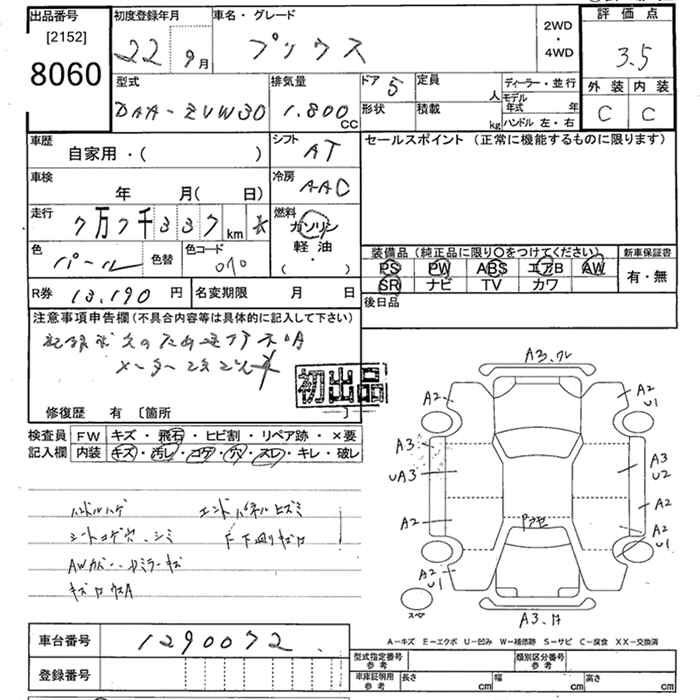 出品番号
[2152]
8060
初度登録年月
22 9月
車名・グレード
プリウス
2WD
・
4WD
評価点
3.5
外装 内装
C C
型式
DAA-ZVW30
排気量
1.800cc
ドア 5
定員 人
形状
積載 kg
ディーラー・並行
モデル年式 年
ハンドル 左・右
車歴
自家用・( )
シフト
AT
セールスポイント (正常に機能するものに限ります)
車検
年 月( 日)
冷房
AAC
走行
7万7千337km *
燃料
ガソリン
軽油
( ・ )
色
パール
色替
色コード
070
装備品 (純正品に限り〇をつけてください)
新車保証書
PS PW ABS エアB AW
有・無
SR ナビ TV カワ
後日品
R券 13,190円
名変期限 月 日
注意事項申告欄(不具合内容等は具体的に記入して下さい)
初出品
修復歴 有 [箇所 ]
検査員
記入欄
FW キズ・飛石・ヒビ割・リペア跡・×要
内装 キズ・汚レ・コゲ・穴・スレ・キレ・破レ
ハンドルハゲ
エンドパネルヒズミ
シートコゲ穴、シミ
A3
A2
A2 U1
A3
UA3
A3
U2
A2
A2
A2
U1
A2
U1
スペア
A3
車台番号
1290072
登録番号
A-キズ E-エクボ U-凹み W-補修跡 S-サビ C-腐食 XX-交換済
型式指定番号
参考
類別区分番号
参考
車庫証明用
参考
長さ cm
幅 cm
高さ cm